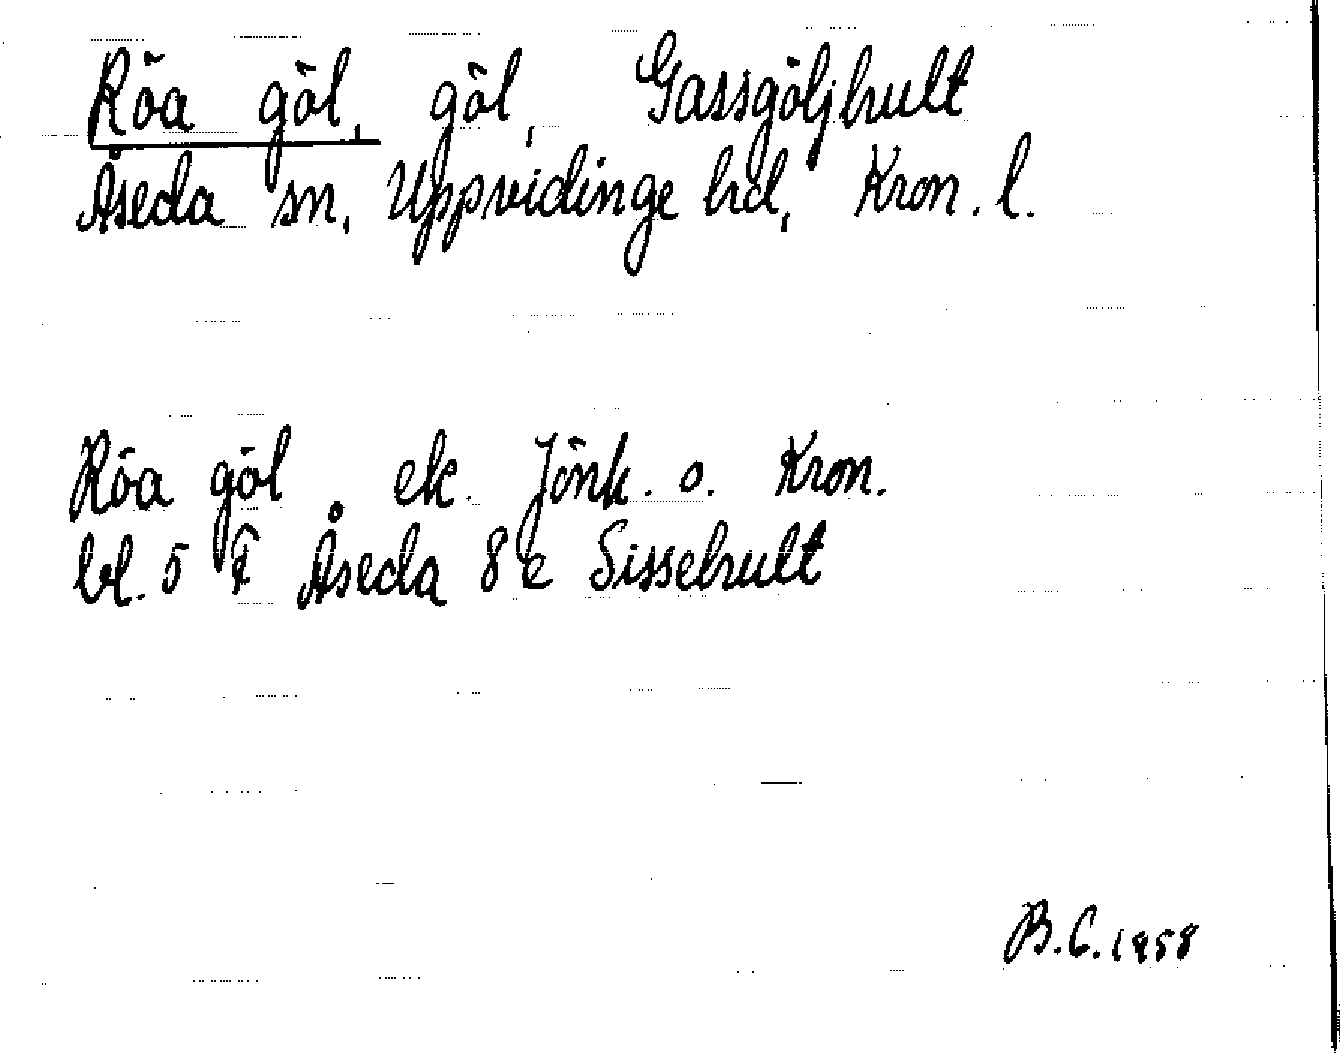 Röa göl, göl, Gassgöljhult
Åseda sn, Uppvidinge hd, Kron. l.
Röa göl ek. Jönk. o. Kron.
bl. 5 F Åseda 8 e Sissehult
B.C. 1958